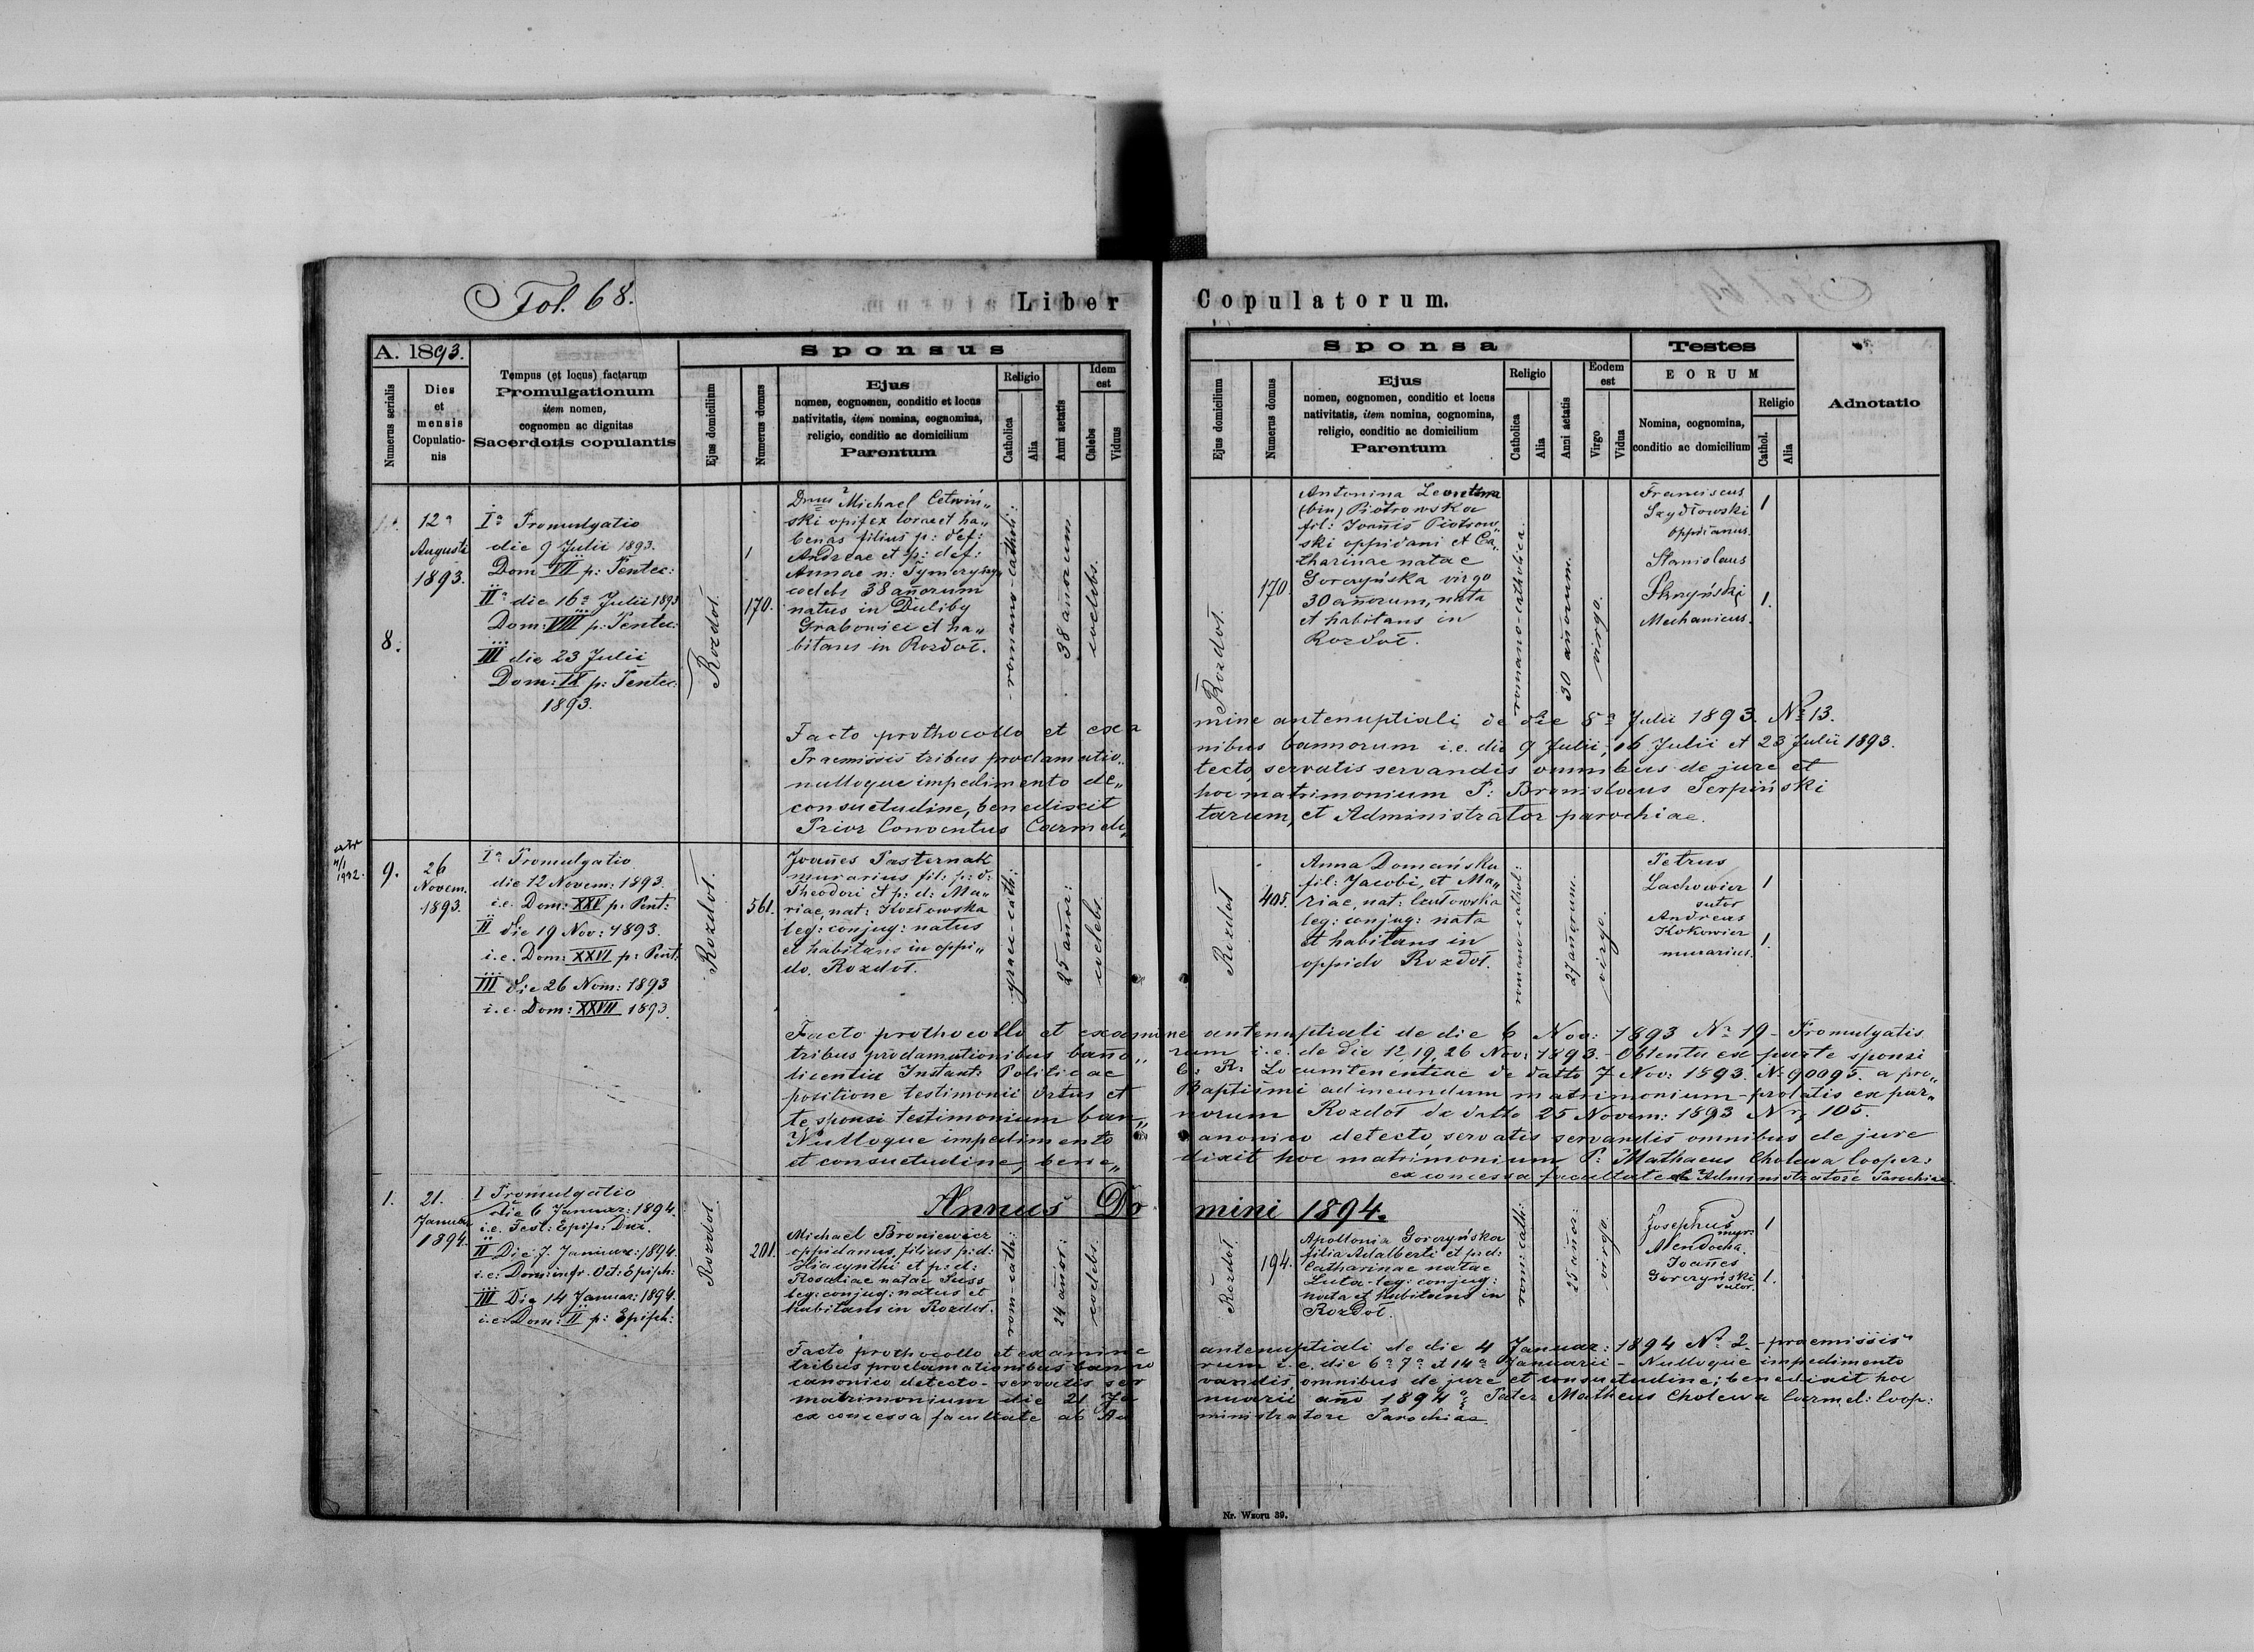 Fol. 68.
Liber Copulatorum.
A. 1893.
Numerus serialis
Dies
et
mensis
Copulatio-
nis
Tempus (et locus) factarum
Promulgationum
item nomen,
cognomen ac dignitas
Sacerdotis copulantis
Sponsus
Ejus domicilium
Numerus domus
Ejus
nomen, cognomen, conditio et locus
nativitatis, item nomina, cognomina,
religio, conditio ac domicilium
Parentum
Religio
Catholica
Alia
Anni aetatis
Idem
est
Calebs
Viduus
Sponsa
Ejus domicilium
Numerus domus
Ejus
nomen, cognomen, conditio et locus
nativitatis, item nomina, cognomina,
religio, conditio ac domicilium
Parentum
Religio
Catholica
Alia
Anni aetatis
Eodem
est
Virgo
Vidua
Testes
EORUM
Nomina, cognomina,
conditio ac domicilium
Religio
Cathol.
Alia
Adnotatio
8.
12a
Augusti
1893.
Ia Promulgatio
die 9 Julii 1893.
Dom VII p: Pentec:
IIa die 16a Julii 1893
Dom: VIII p: Pentec:
III die 23 Julii
Dom: IX p: Pentec:
1893.
Rozdoł.
170.
Michael Cetwiń„
ski opifex et ha„
benas filius p: def:
Andreae et p: def:
Annae n:
coelebs 38 añorum
natus in Duliby
Grabowiec et ha„
bitans in Rozdoł.
romano-cathol:
38 añorum
coelebs.
Rozdoł.
170.
Antonina
(bin) Piotrowska
fil: Joañis Piotrow„
ski oppidani et Ca„
tharinae natae
Gorczyńska virgo
30 añorum, nata
et habitans in
Rozdoł.
romano-catholica.
30 añorum.
virgo.
Franciscus
Szydłowski
oppidanus.
1
Stanislaus
Skrzyński
Mechanicus.
1.
Facto prothocollo et exa mine antenuptiali de die 8a Julii 1893. No 13.
Praemissis tribus proclamatio„ nibus bannorum i.e. die 9 Julii, 16 Julii et 23 Julii 1893.
nulloque impedimento de„ tecto, servatis servandis omnibus de jure et
consuetudine, benedixit hoc matrimonium P: Bronislaus Serpiński
Prior Conventus Carmeli„ tarum, et Administrator parochiae.
11/1
1932.
9.
26
Novem.
1893.
Ia Promulgatio
die 12 Novem: 1893.
i.e. Dom: XXV p: Pent:
II die 19 Nov: 1893.
i.e. Dom: XXVI p: Pent:
III die 26 Nom: 1893
i.e. Dom: XXVII 1893.
Rozdoł.
561.
Joañes Pasternak
murarius fil: p: d:
Theodori et p: d: Ma„
riae, nat: Kozłowska
leg: conjug: natus
et habitans in oppi„
do, Rozdoł.
graec-cath:
25 añor:
coelebs.
Rozdoł
405.
Anna Domańska
fil: Jacobi, et Ma„
riae, nat:
leg: conjug: nata
et habitans in
oppido Rozdoł.
romano-cathol:
27 añorum.
virgo.
Petrus
Lachowicz
sutor
1
Andreas
Kokowicz
murarius.
1.
Facto prothocollo et examine antenuptiali de die 6 Nov: 1893 No 19 - Promulgatis
tribus proclamationibus bañо„ rum i.e. de die 12, 19, 26 Nov: 1893. - Obtenta ex parte sponsi
licentia Instant: Politicae C: R: Locumtenentiae de datto 7 Nov: 1893. No 90095. a pro„
positione testimonii ortus et Baptismi ad ineundum matrimonium - prolatis ex par„
te sponsi testimonium ban„ norum Rozdoł de datto 25 Novem: 1893 Nr 105.
Nulloque impedimento canonico detecto, servatis servandis omnibus de jure
et consuetudine, bene„ dixit hoc matrimonium P: Mathaeus Cholewa Cooper:
ex concessa facultate ab Administratore Parochiae.
Annus Do mini 1894.
1.
21.
Januar
1894.
I Promulgatio
die 6 Januar: 1894.
i.e. Fest: Epiph: Dni.
II Die 7. Januar: 1894.
i.e: Dom: infr. Oct: Epiph:
III Die 14 Januar: 1894.
i.e: Dom: II p: Epiph:
Rozdoł
201.
Michael Broniewicz
oppidanus, filius p: d:
Hiacynthi et p: d:
Rosaliae natae Suss
leg: conjug: natus et
habitans in Rozdoł.
rom-cath:
24 añor:
coelebs.
Rozdoł.
194.
Apollonia Gorczyńska
filia Adalberti et p: d:
Catharinae natae
Luta - leg: conjug:
nata et habitans in
Rozdoł.
rom: cath:
25 añor:
virgo.
Josephus
Mendocha.
1
Joañes
Gorczyński
sutor.
1.
Facto prothocollo et examine antenuptiali de die 4 Januar: 1894 No 2. - praemissis
tribus proclamationibus banno rum i.e. die 6a 7a et 14a Januarii - Nulloque impedimento
canonico detecto - servatis ser vandis, omnibus de jure et consuetudine; benedixit hoc
matrimonium die 21 Ja nuarii año 1894 Pater Matheus Cholewa Carmel: Coop:
ex concessa facultate ab Ad ministratore Parochiae.
Nr. Wzoru 39.